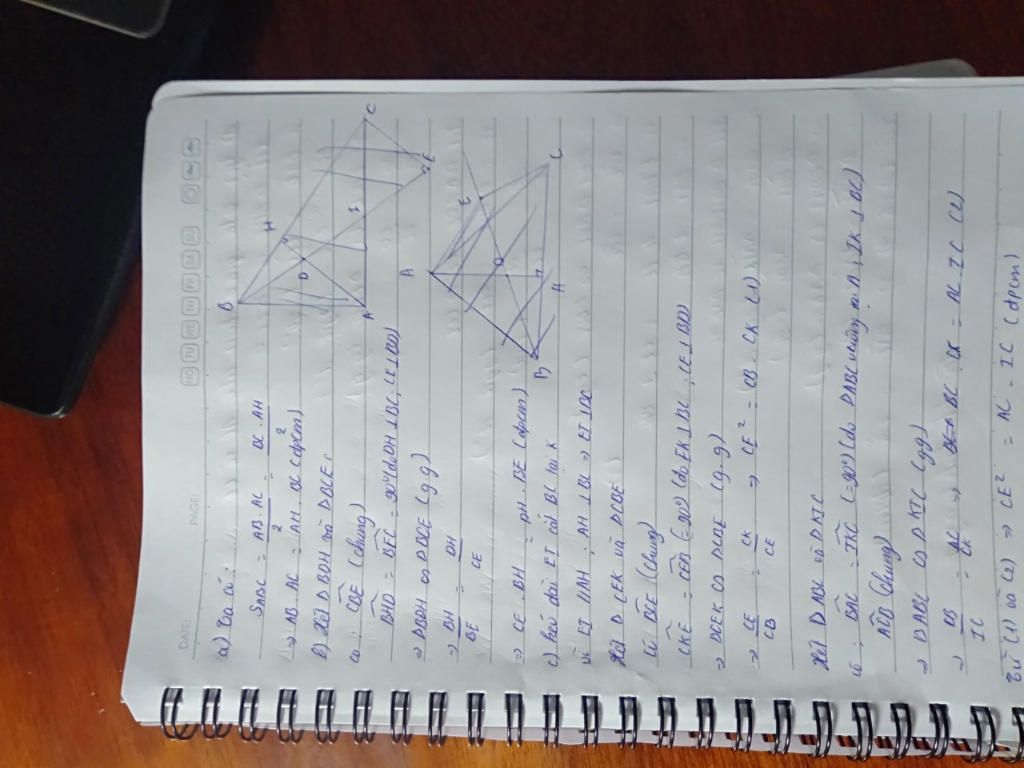 DATE:
PAGE:
MO TU WE TH FR SA SU
a) Ta có:
SABC = AB.AC / 2 = BC.AH / 2
⇒ AB.AC = AH.BC (đpcm)
b) Xét D BDH và DBCE:
có: CBE (chung)
BHD = BEC = 90° (do DH ⊥ BC; CE ⊥ BD)
⇒ DBDH ∽ DBCE (g.g)
⇒ BH / BE = DH / CE
⇒ CE.BH = DH.BE (đpcm)
c) kéo dài EI cắt BC tại K
Vì EI // AH; AH ⊥ BC ⇒ EI ⊥ BC
Xét D CEK và DCBE
Có BCE (chung)
CKE = CEB (=90°) (do EK ⊥ BC; CE ⊥ BD)
⇒ DCEK ∽ DCBE (g.g)
⇒ CE / CB = CK / CE ⇒ CE² = CB.CK (1)
Xét D ABC và D KIC
có: BAC = IKC (=90°) (do DABC vuông tại A; IK ⊥ BC)
ACB (chung)
⇒ DABC ∽ DKIC (gg)
⇒ CB / IC = AC / CK ⇒ BC.CK = AC.IC (2)
Từ (1) và (2) ⇒ CE² = AC.IC (đpcm)
B
H
D
A
I
C
E
A
E
D
B
H
C